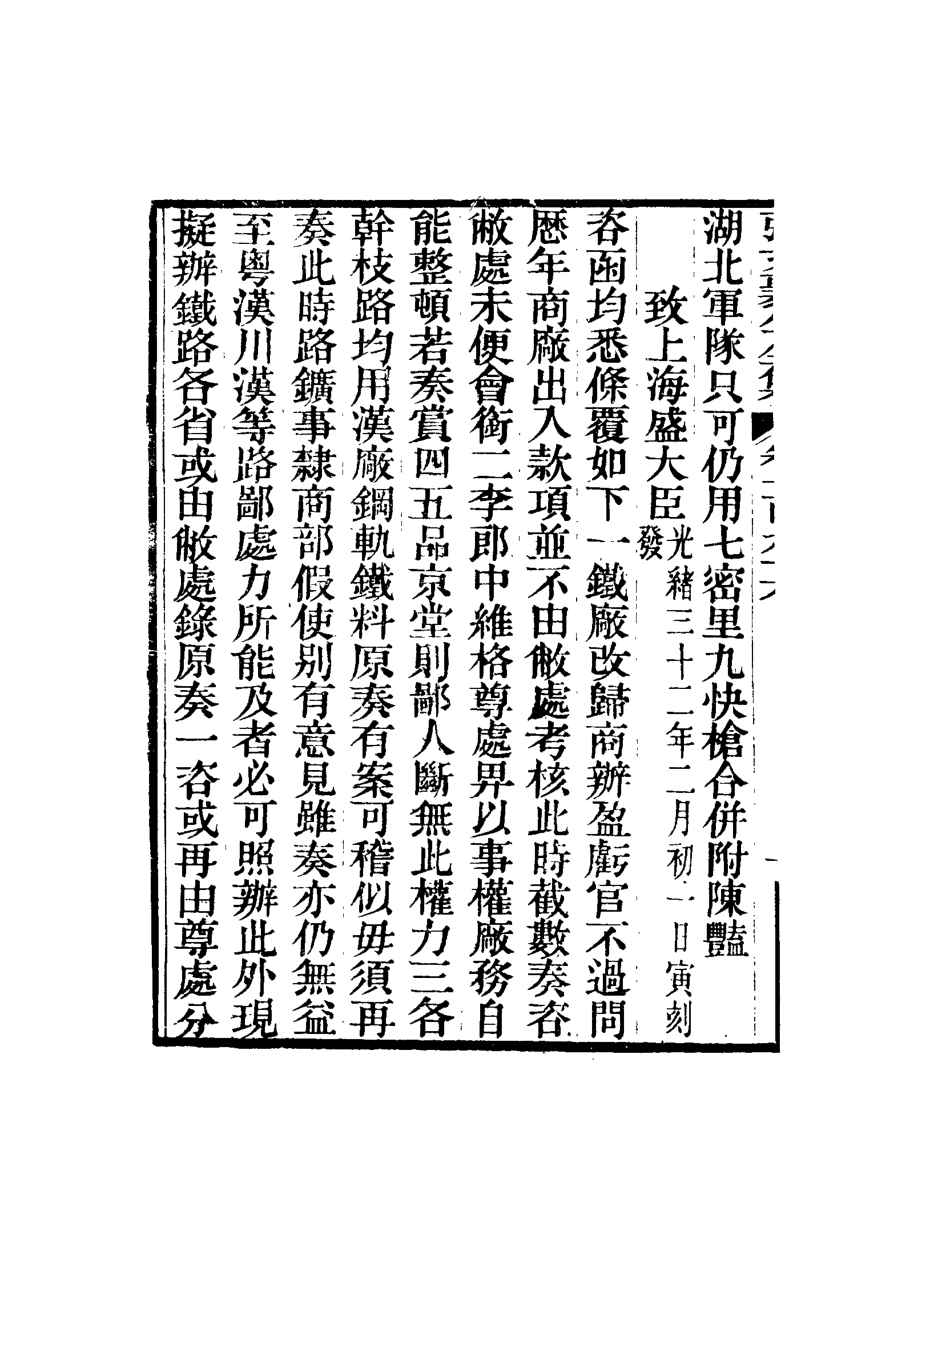 湖北軍隊只可仍用七密里九快槍合併附陳豔
致上海盛大臣光緒三十二年二月初一日寅刻發
咨函均悉條覆如下一鐵廠改歸商辦盈虧官不過問
歷年商廠出入款項並不由敝處考核此時截數奏咨
敝處未便會銜二李郎中維格尊處畀以事權廠務自
能整頓若奏賞四五品京堂則鄙人斷無此權力三各
幹枝路均用漢廠鋼軌鐵料原奏有案可稽似毋須再
奏此時路鑛事隸商部假使別有意見雖奏亦仍無益
至粵漢川漢等路鄙處力所能及者必可照辦此外現
擬辦鐵路各省或由敝處錄原奏一咨或再由尊處分